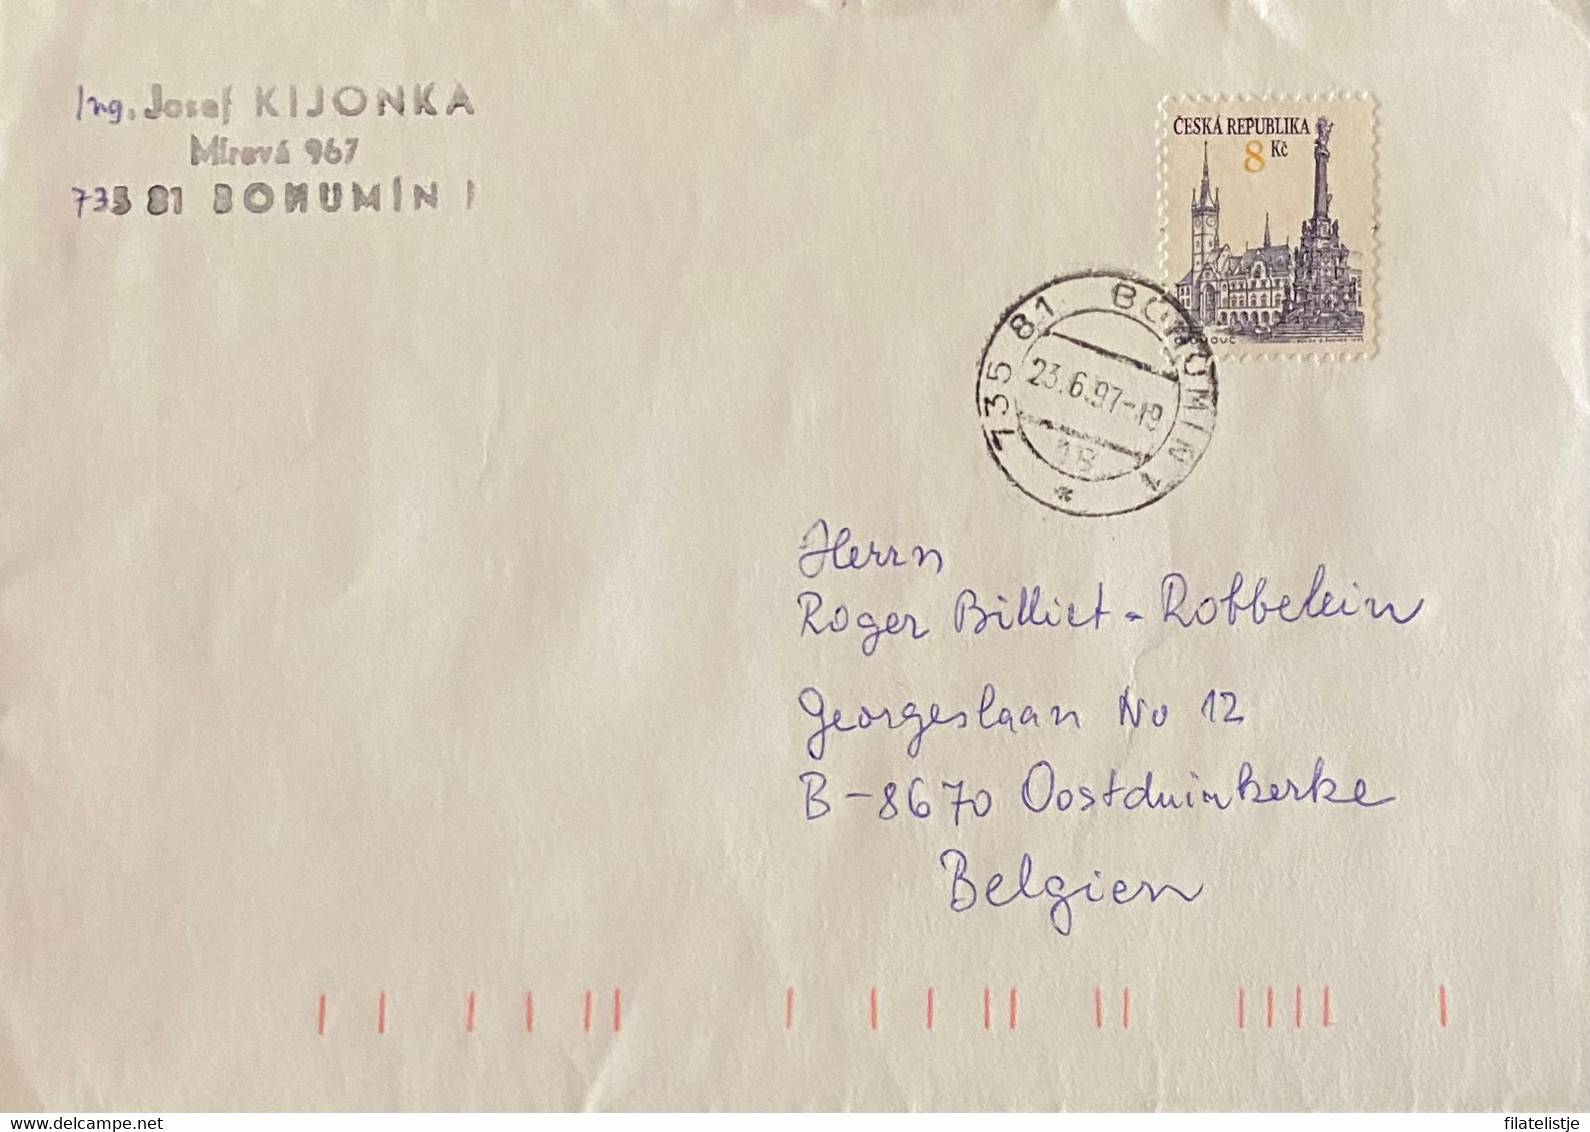 Ing. Josef KIJONKA
Mírová 967
735 81 BOHUMÍN 1
ČESKÁ REPUBLIKA
8 Kč
OLOMOUC
735 81 BOHUMÍN 1
23.6.97-19
Herrn
Roger Billiet - Robbelein
Georgeslaan No 12
B-8670 Oostduinkerke
Belgien
www.delcampe.net
filatelistje